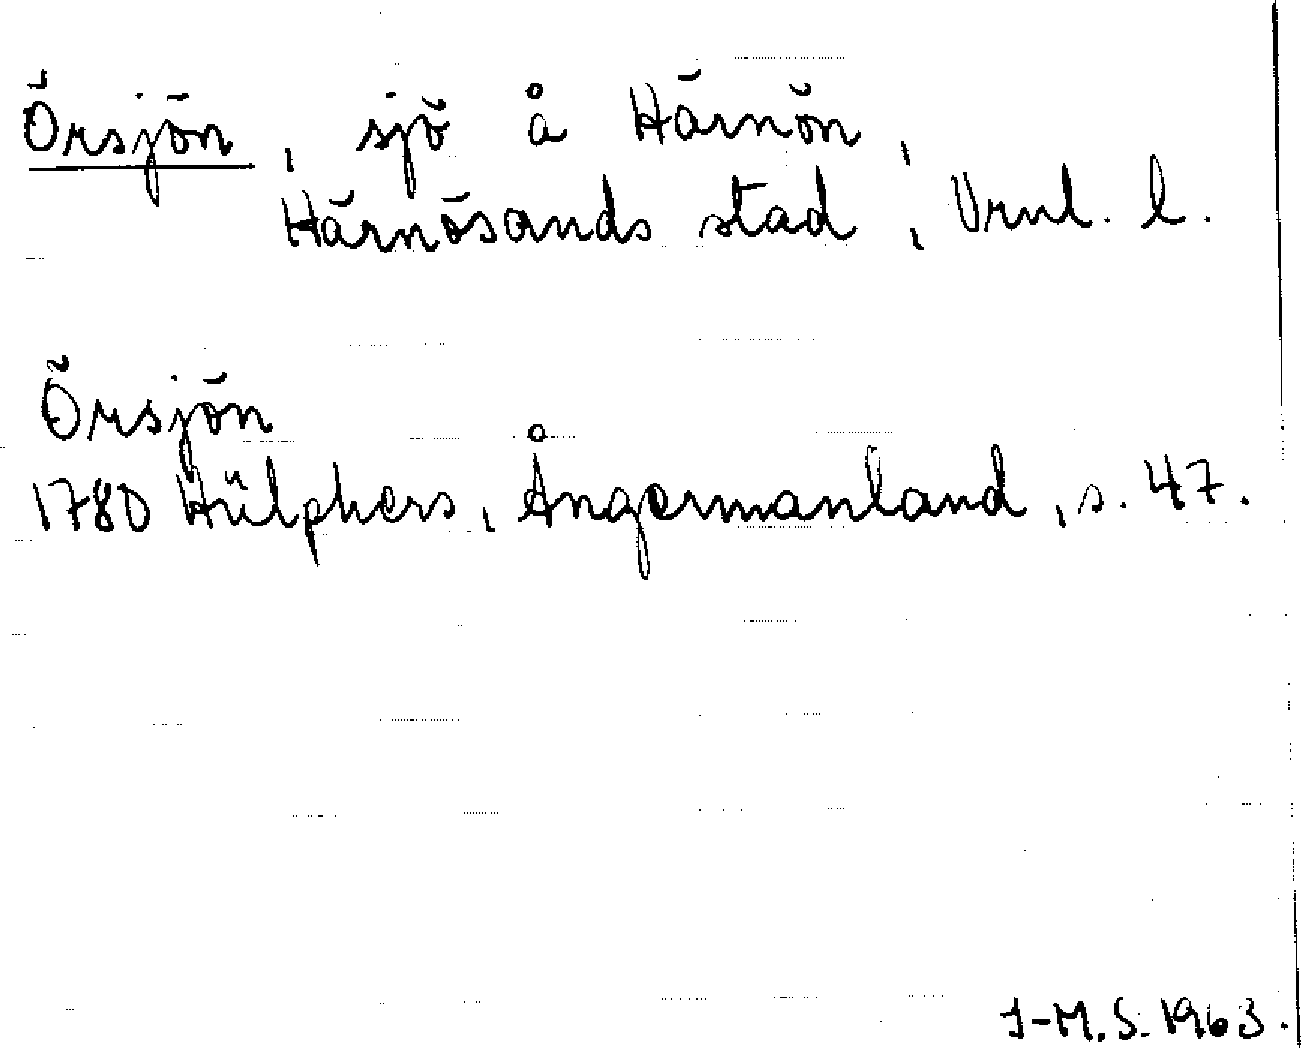 Örsjön, sjö å Härnön,
Härnösands stad, Vrnl. l.
Örsjön
1780 Hülphers, Ångermanland, s. 47.
I-M.S. 1963.